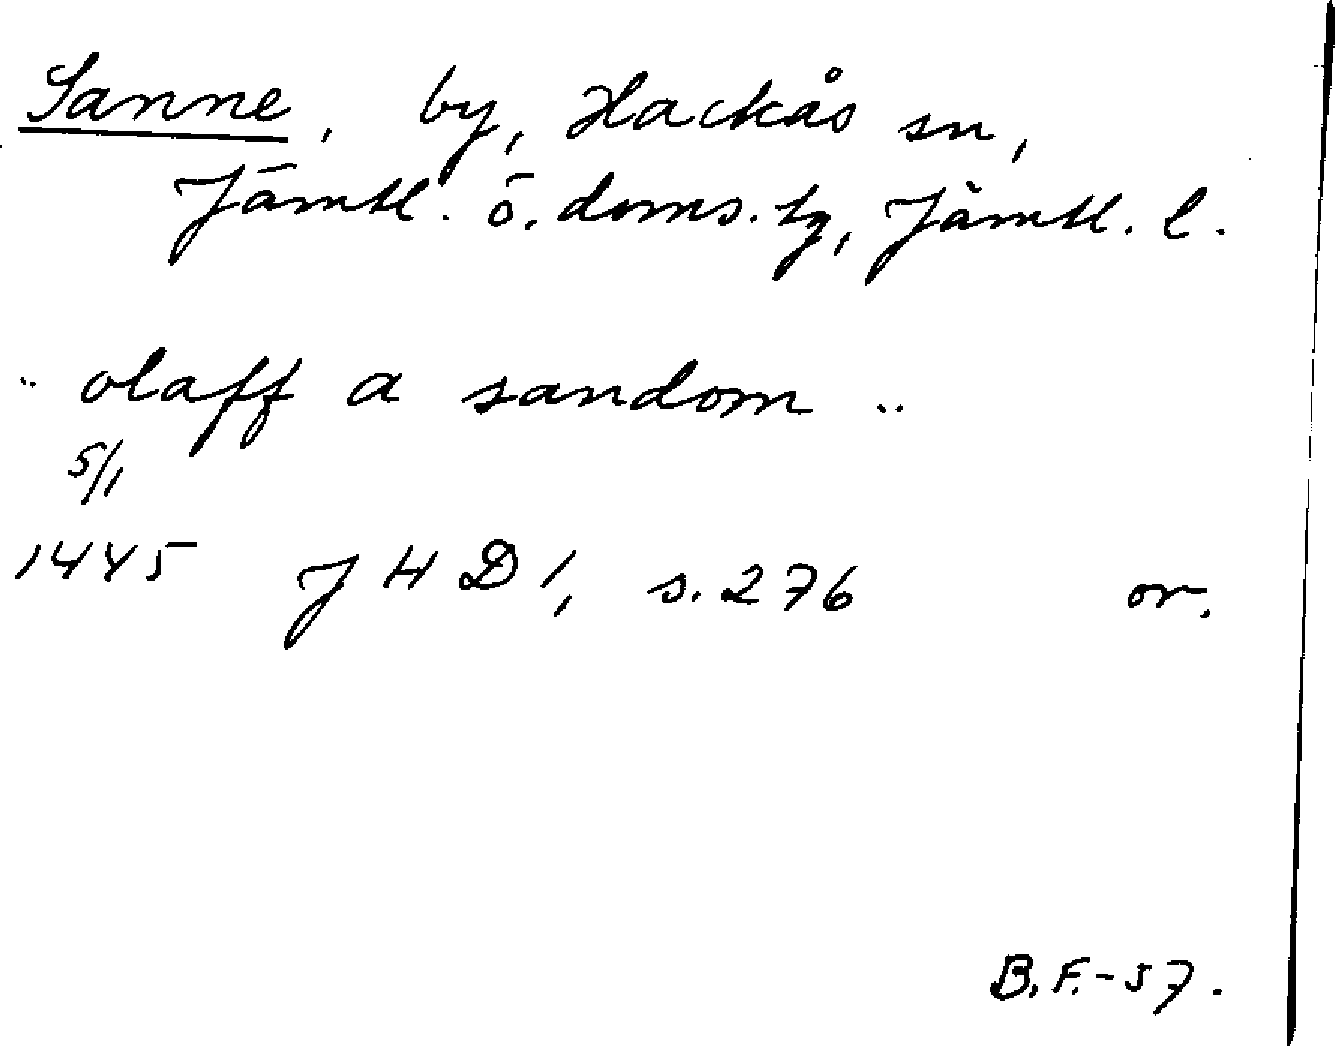 Sanne, by, Hackås sn,
Jämtl. ö. doms. tg, Jämtl. l.
.. olaff a sandom ..
5/1
1445 J H D 1, s. 276 or.
B.F.-57.